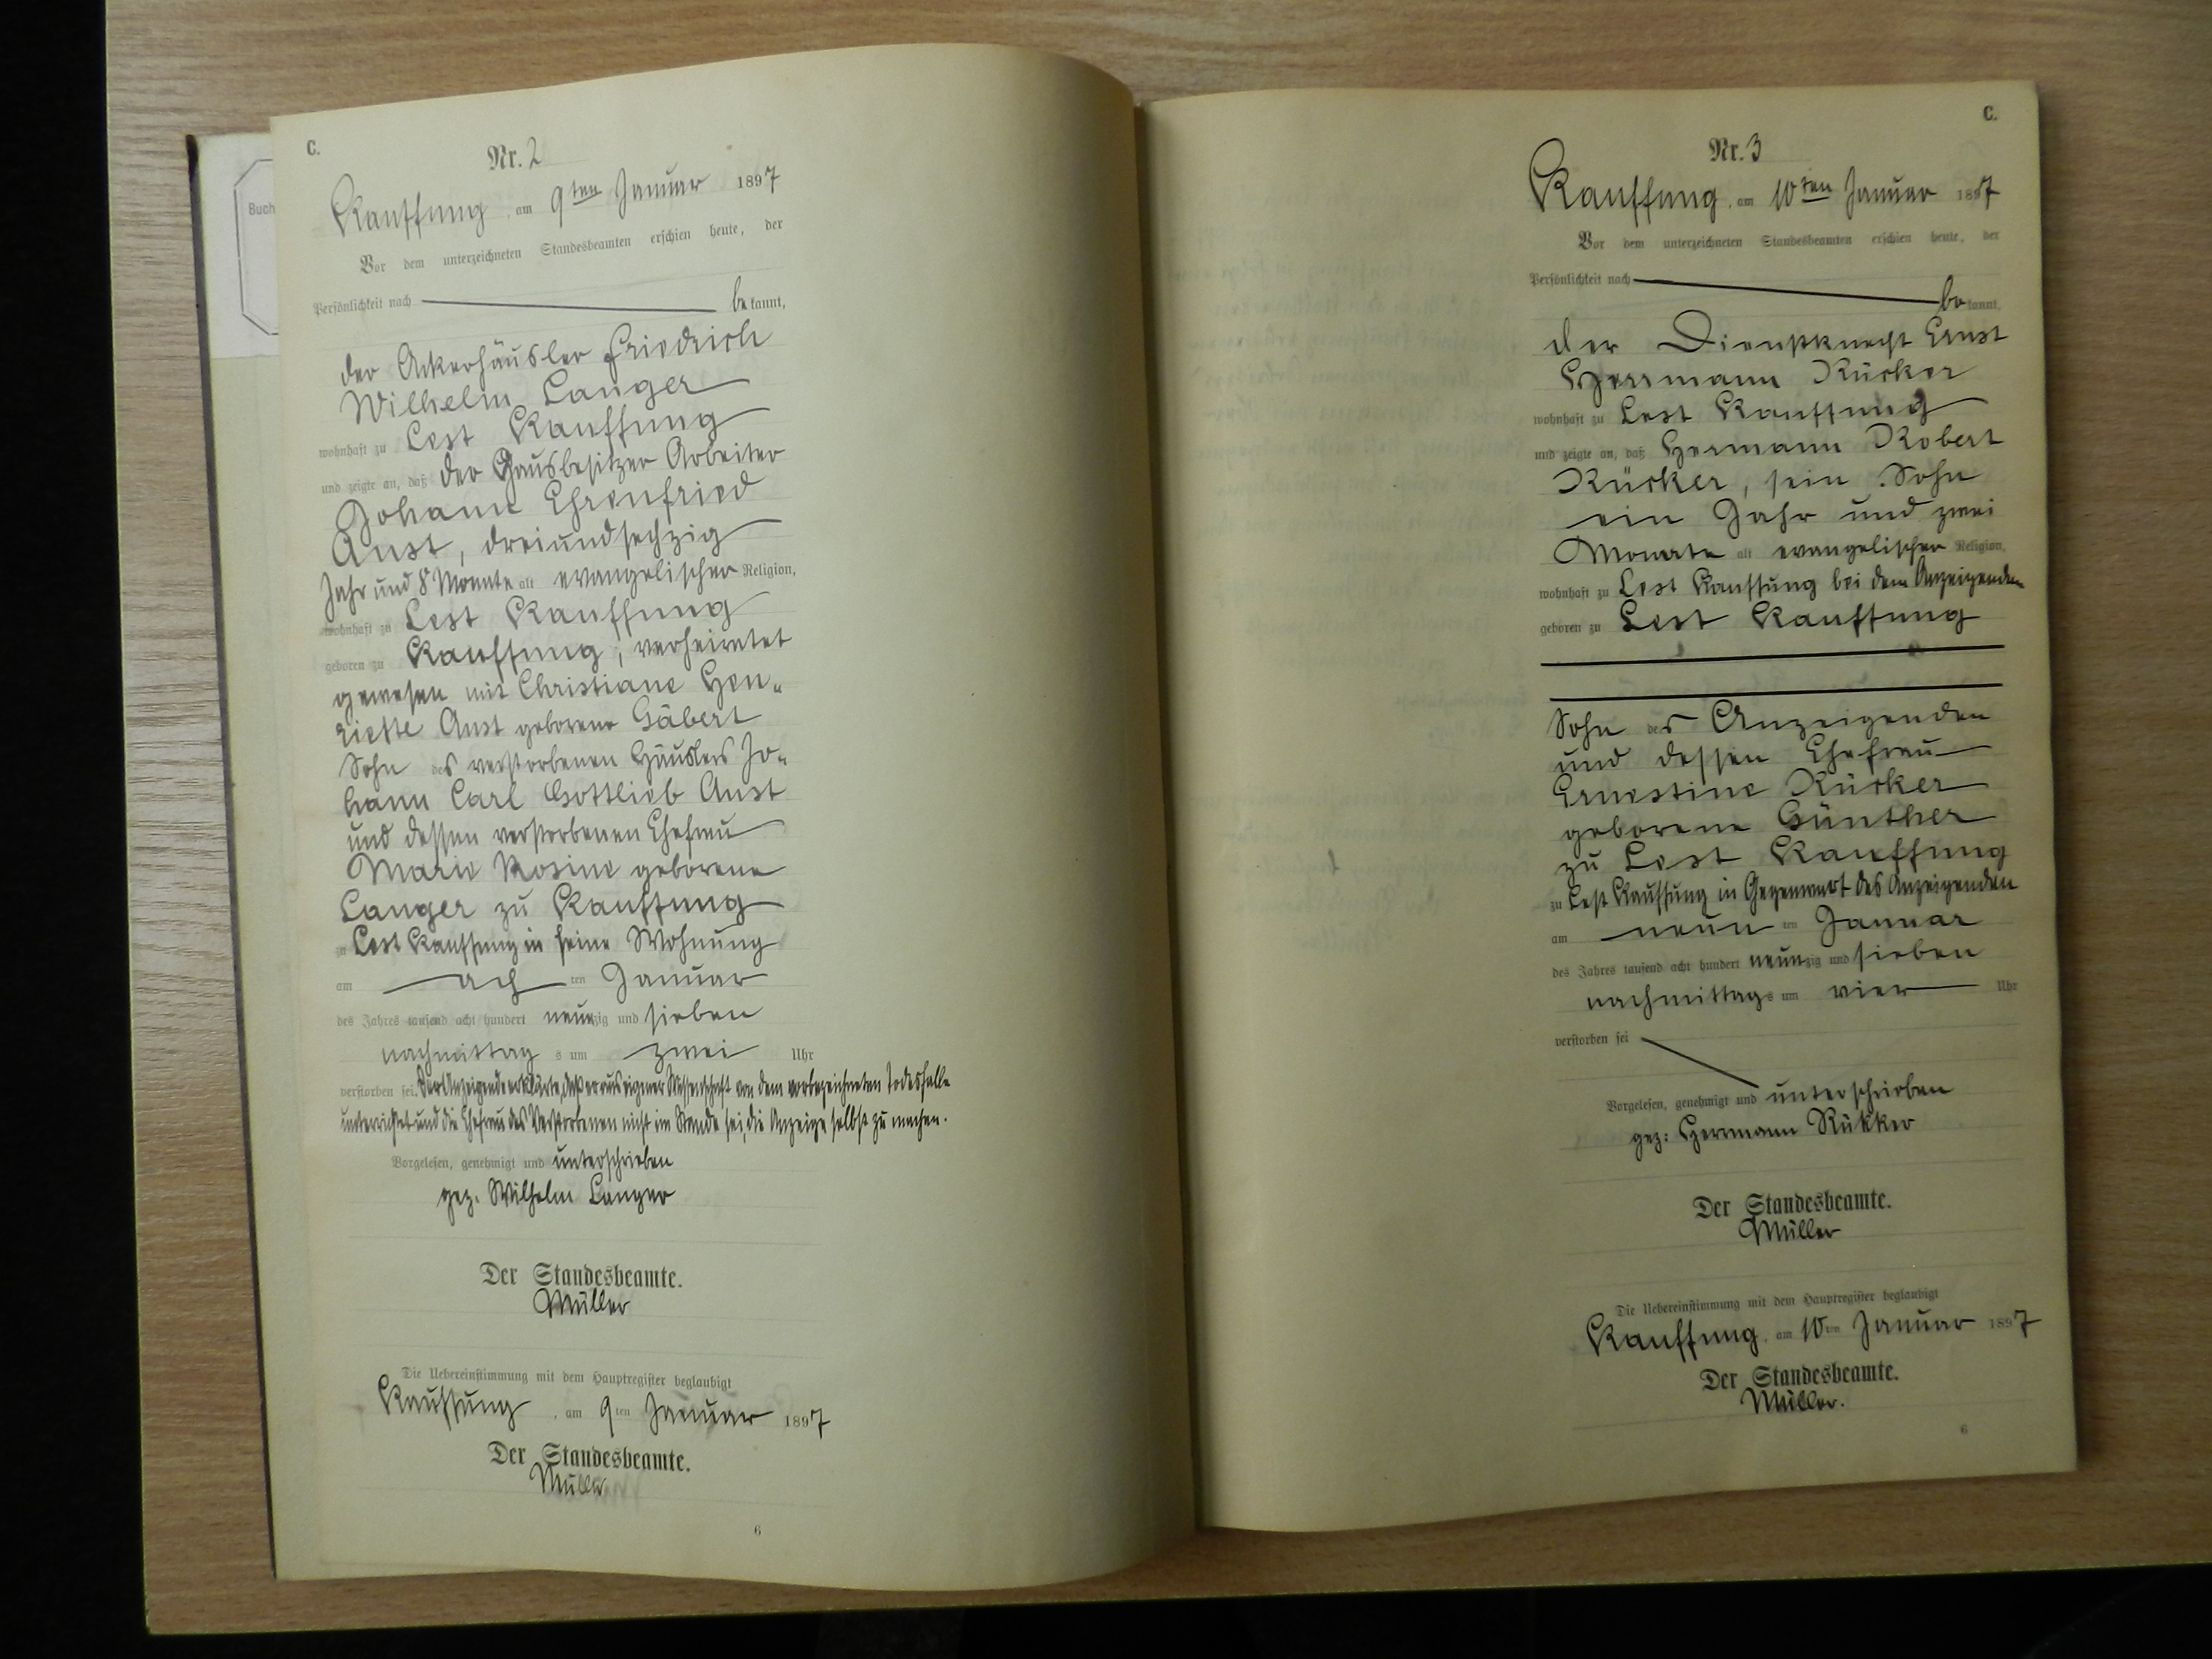 Buch
C.
Nr. 2
Kauffung, am 9ten Januar 1897
Vor dem unterzeichneten Standesbeamten erschien heute, der
Persönlichkeit nach bekannt,
der Ackerhäusler Friedrich
Wilhelm Langer
wohnhaft zu Lest Kauffung
und zeigte an, daß der Hausbesitzer Arbeiter
Johann Ehrenfried
Aust, dreiundsechzig
Jahr und 8 Monate alt evangelischer Religion,
wohnhaft zu Lest Kauffung
geboren zu Kauffung, verheiratet
gewesen mit Christiane Hen„
riette Aust geborene Gäbert
Sohn des verstorbenen Häuslers Jo„
hann Carl Gottlieb Aust
und dessen verstorbenen Ehefrau
Marie Rosine geborene
Langer zu Kauffung
zu Lest Kauffung in seine Wohnung
am ach ten Januar
des Jahres tausend acht hundert neunzig und sieben
nachmittags um zwei Uhr
verstorben sei. Der Anzeigende erklärte, daß er aus eigener Wissenschaft von dem vorbezeichneten Todesfalle
unterrichtet und die Ehefrau des Verstorbenen nicht im Stande sei, die Anzeige selbst zu machen.
Vorgelesen, genehmigt und unterschrieben
gez. Wilhelm Langer
Der Standesbeamte.
Müller
Die Uebereinstimmung mit dem Hauptregister beglaubigt
Kauffung, am 9ten Januar 1897
Der Standesbeamte.
Müller
6
C.
Nr. 3
Kauffung, am 10ten Januar 1897
Vor dem unterzeichneten Standesbeamten erschien heute, der
Persönlichkeit nach bekannt,
der Dienstknecht Ernst
Herrmann Rücker
wohnhaft zu Lest Kauffung
und zeigte an, daß Hermann Robert
Rücker, sein Sohn
ein Jahr und zwei
Monate alt evangelischer Religion,
wohnhaft zu Lest Kauffung bei dem Anzeigenden
geboren zu Lest Kauffung
Sohn des Anzeigenden
und dessen Ehefrau
Ernestine Rücker
geborene Günther
zu Lest Kauffung
zu Lest Kauffung in Gegenwart des Anzeigenden
am neun ten Januar
des Jahres tausend acht hundert neunzig und sieben
nachmittags um vier Uhr
verstorben sei
Vorgelesen, genehmigt und unterschrieben
gez: Herrmann Rükker
Der Standesbeamte.
Müller
Die Uebereinstimmung mit dem Hauptregister beglaubigt
Kauffung, am 10ten Januar 1897
Der Standesbeamte.
Müller.
6